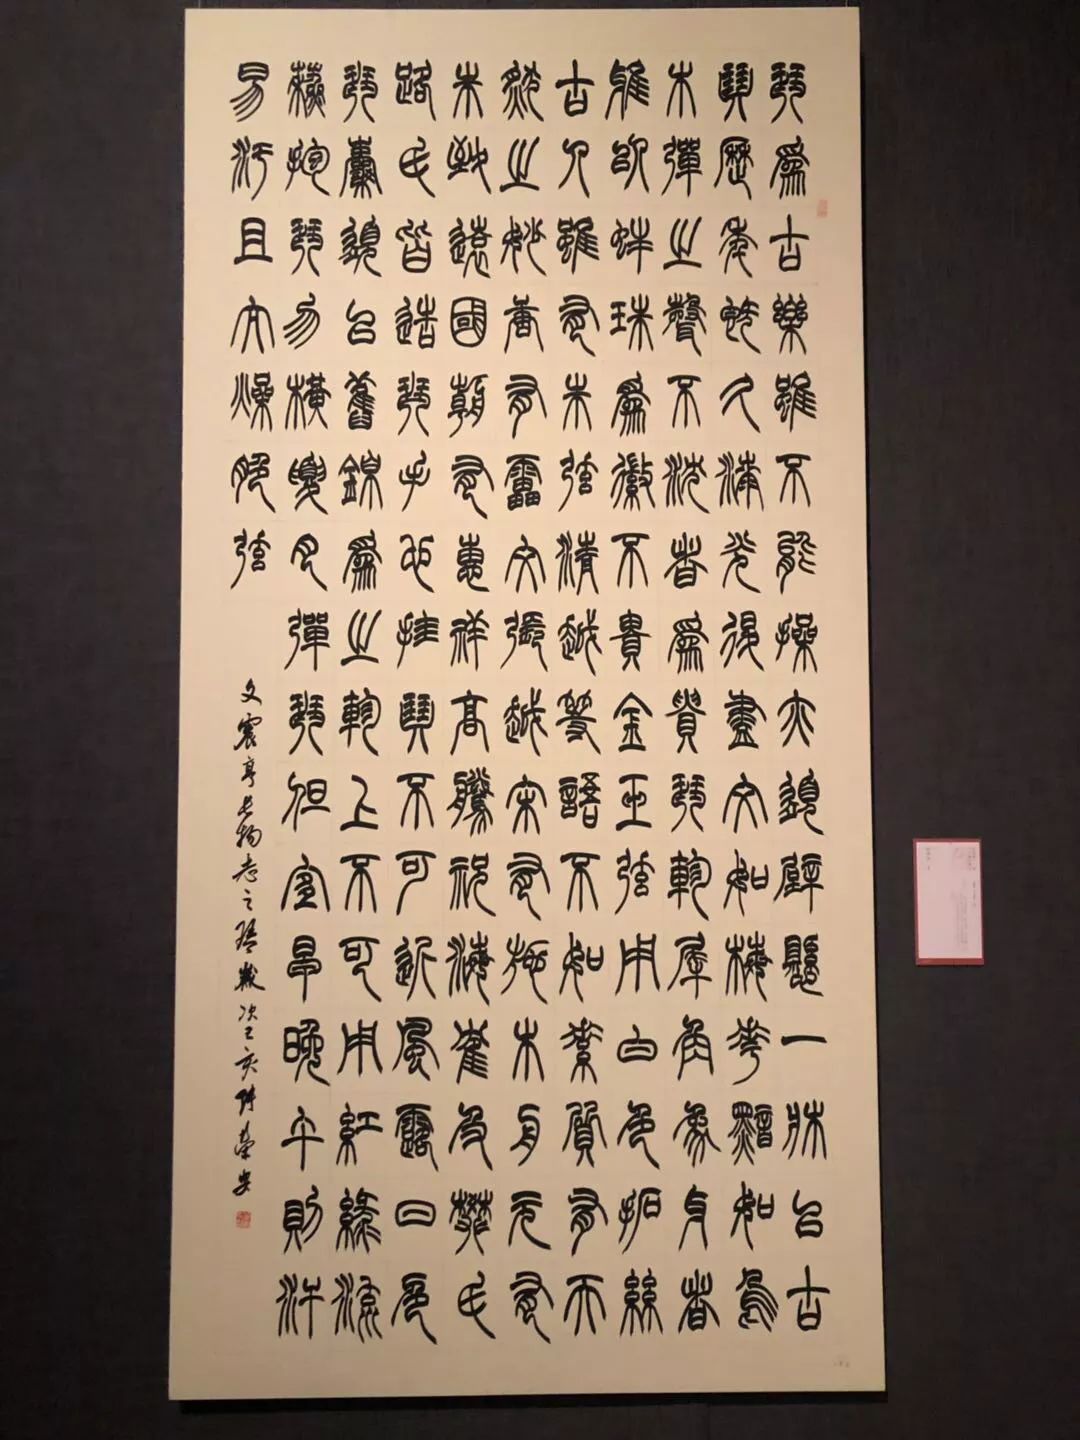 琴為古樂雖不能操亦須壁懸一牀以古
琴歷年既久漆光退盡文如梅華黯如烏
木彈之聲不沈者為貴琴軫犀角象牙者
雅以蚌珠為徽不貴金玉弦用白色柘絲
古人雖有朱弦清越等語不如素質有天
然之妙唐有雷文張越宋有施木舟元有
朱致遠國朝有惠祥高騰祝海鶴及樊氏
路氏皆造琴手也挂琴不可近風露日色
琴囊須以舊錦為之軫上不可用紅綠流
蘇抱琴勿橫夏月彈琴但宜早晚午則汗
易汙且太燥脆弦
文震亨長物志之琴歲次己亥榮安